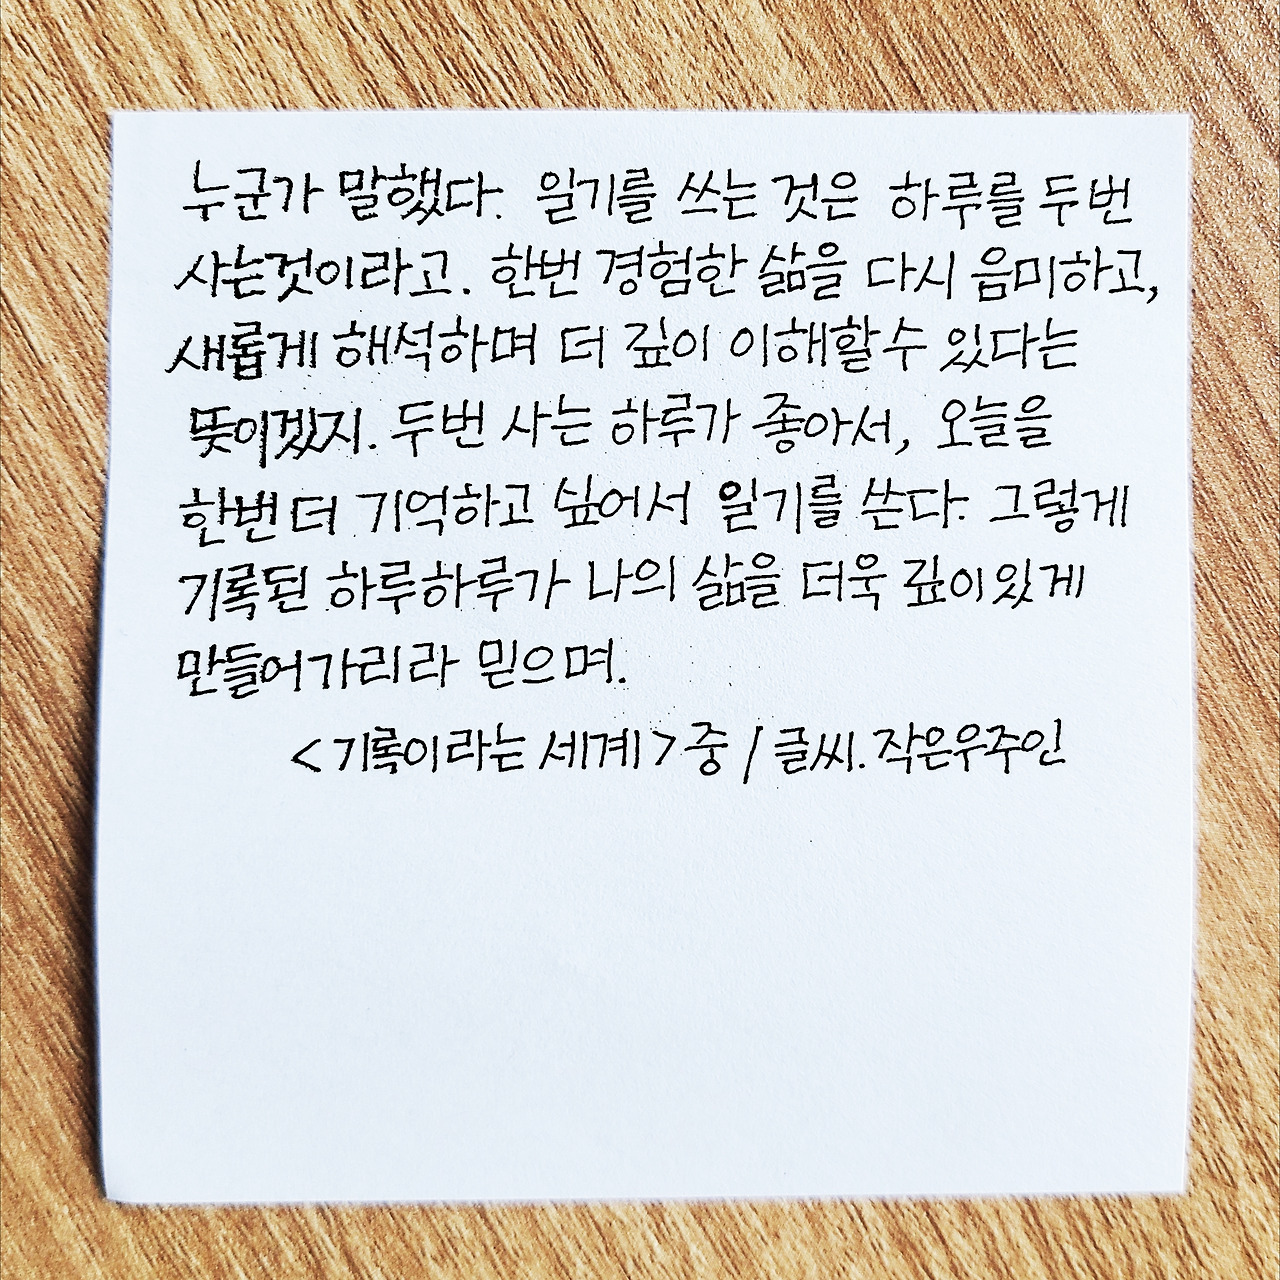 누군가 말했다. 일기를 쓰는 것은 하루를 두번
사는것이라고. 한번 경험한 삶을 다시 음미하고,
새롭게 해석하며 더 깊이 이해할수 있다는
뜻이겠지. 두번 사는 하루가 좋아서, 오늘을
한번더 기억하고 싶어서 일기를 쓴다. 그렇게
기록된 하루하루가 나의 삶을 더욱 깊이있게
만들어가리라 믿으며.
<기록이라는 세계> 중 / 글씨.작은우주인